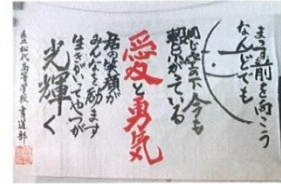 まっすぐ前を向こう
なんどでも
同じ空の下今も
繋がっている
愛と勇気
君の笑顔が
みんなを励ます
生きがいてやつが
光輝く
県立松代高等学校書道部